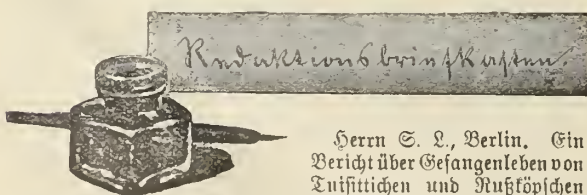 Redaktionsbriefkasten.
Herrn S. L., Berlin. Ein
Bericht über Gefangenleben von
Tuisittichen und Rußköpfchen